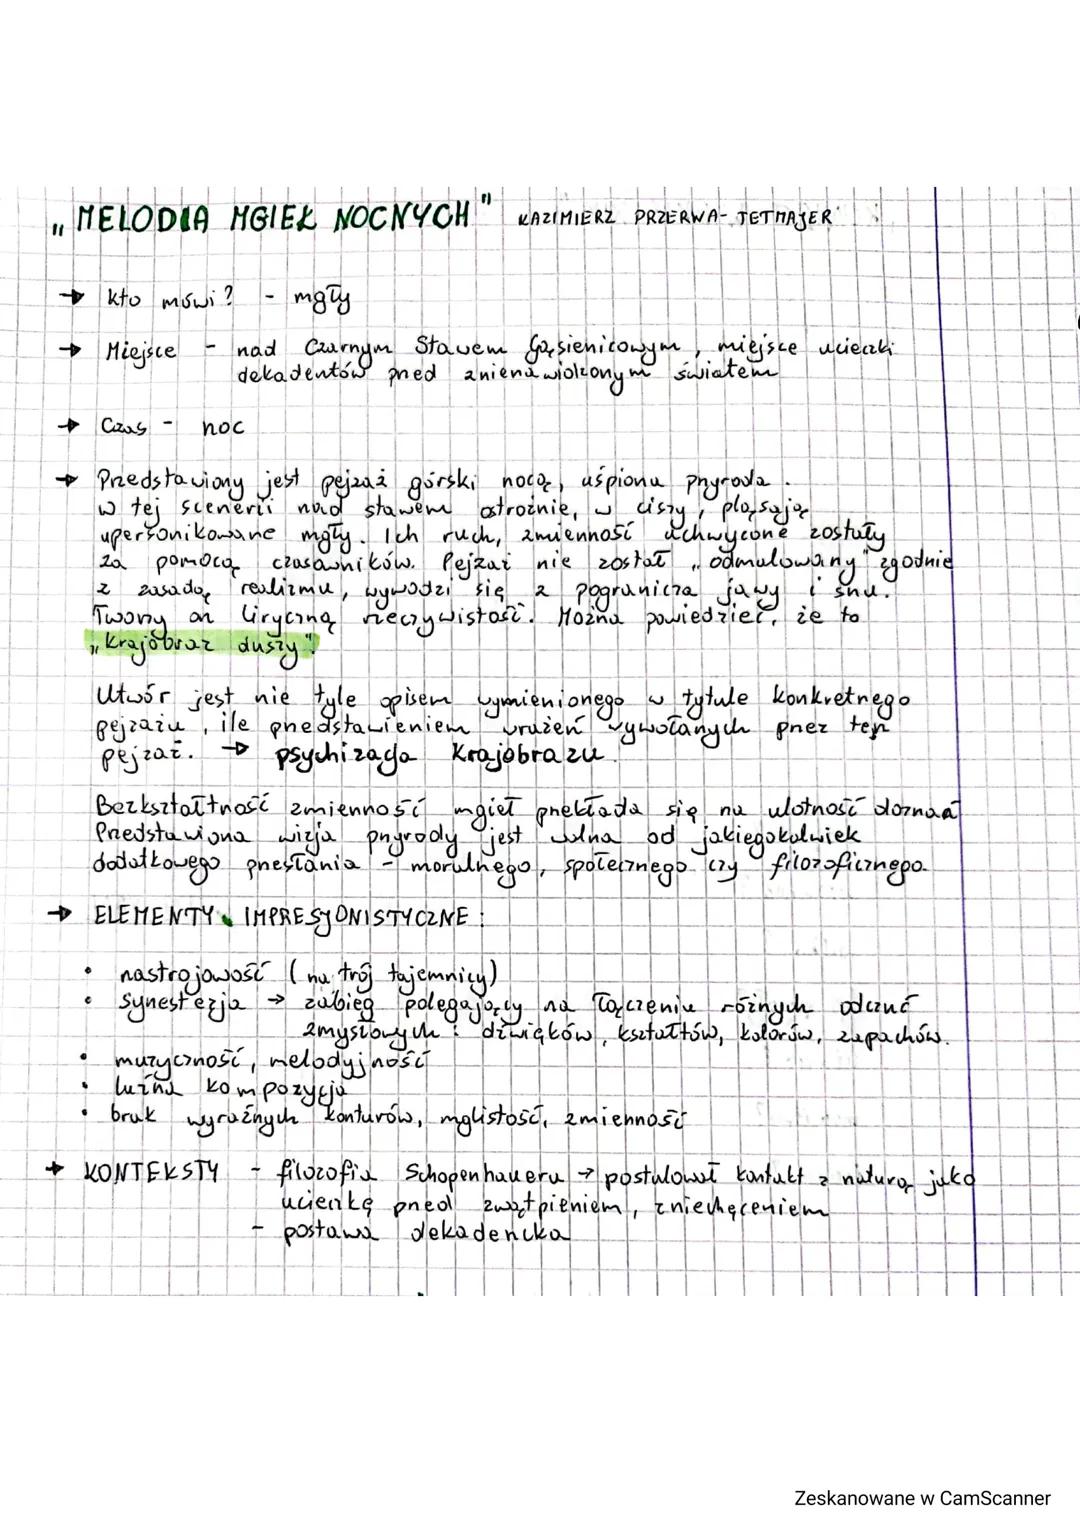 „MELODIA MGIEŁ NOCNYCH" KAZIMIERZ PRZERWA-TETMAJER
→ kto mówi? - mgły
→ Miejsce - nad Czarnym Stawem Gąsienicowym, miejsce ucieczki
dekadentów przed znienawidzonym światem
→ Czas - noc
→ Przedstawiony jest pejzaż górski nocą, uśpiona przyroda.
w tej scenerii nad stawem ostrożnie, w ciszy, pląsają
upersonikowane mgły. Ich ruch, zmienność uchwycone zostały
za pomocą czasowników. Pejzaż nie został „odmalowany" zgodnie
z zasadą realizmu, wywodzi się z pogranicza jawy i snu.
Tworzy on liryczną rzeczywistość. Można powiedzieć, że to
„krajobraz duszy".
Utwór jest nie tyle opisem wymienionego w tytule konkretnego
pejzażu, ile przedstawieniem wrażeń wywołanych przez ten
pejzaż. → psychizacja krajobrazu.
Bezkształtność zmienność mgieł przekłada się na ulotność doznań
Przedstawiona wizja przyrody jest wolna od jakiegokolwiek
dodatkowego przesłania - moralnego, społecznego czy filozoficznego.
→ ELEMENTY IMPRESJONISTYCZNE:
• nastrojowość (na trój tajemnicy)
• synestezja → zabieg polegający na łączeniu różnych odczuć
zmysłowych: dźwięków, kształtów, kolorów, zapachów.
• muzyczność, melodyjność
• luźna kompozycja
• brak wyraźnych konturów, mglistość, zmienność
→ KONTEKSTY - filozofia Schopenhauera → postulował kontakt z naturą jako
ucieczkę przed zwątpieniem, zniechęceniem
- postawa dekadencka
Zeskanowane w CamScanner